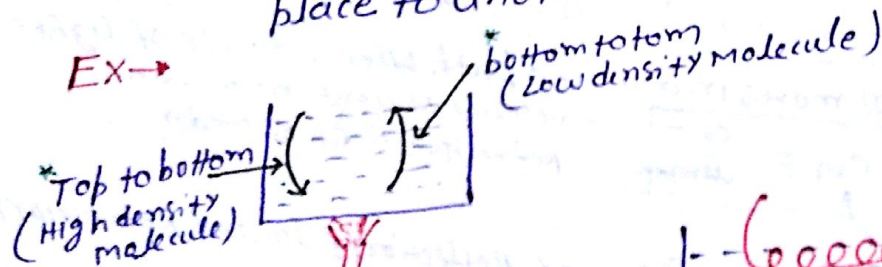 place to
Ex→
* bottom to tom
(Low density Molecule)
* Top to bottom
(High density
malecule)